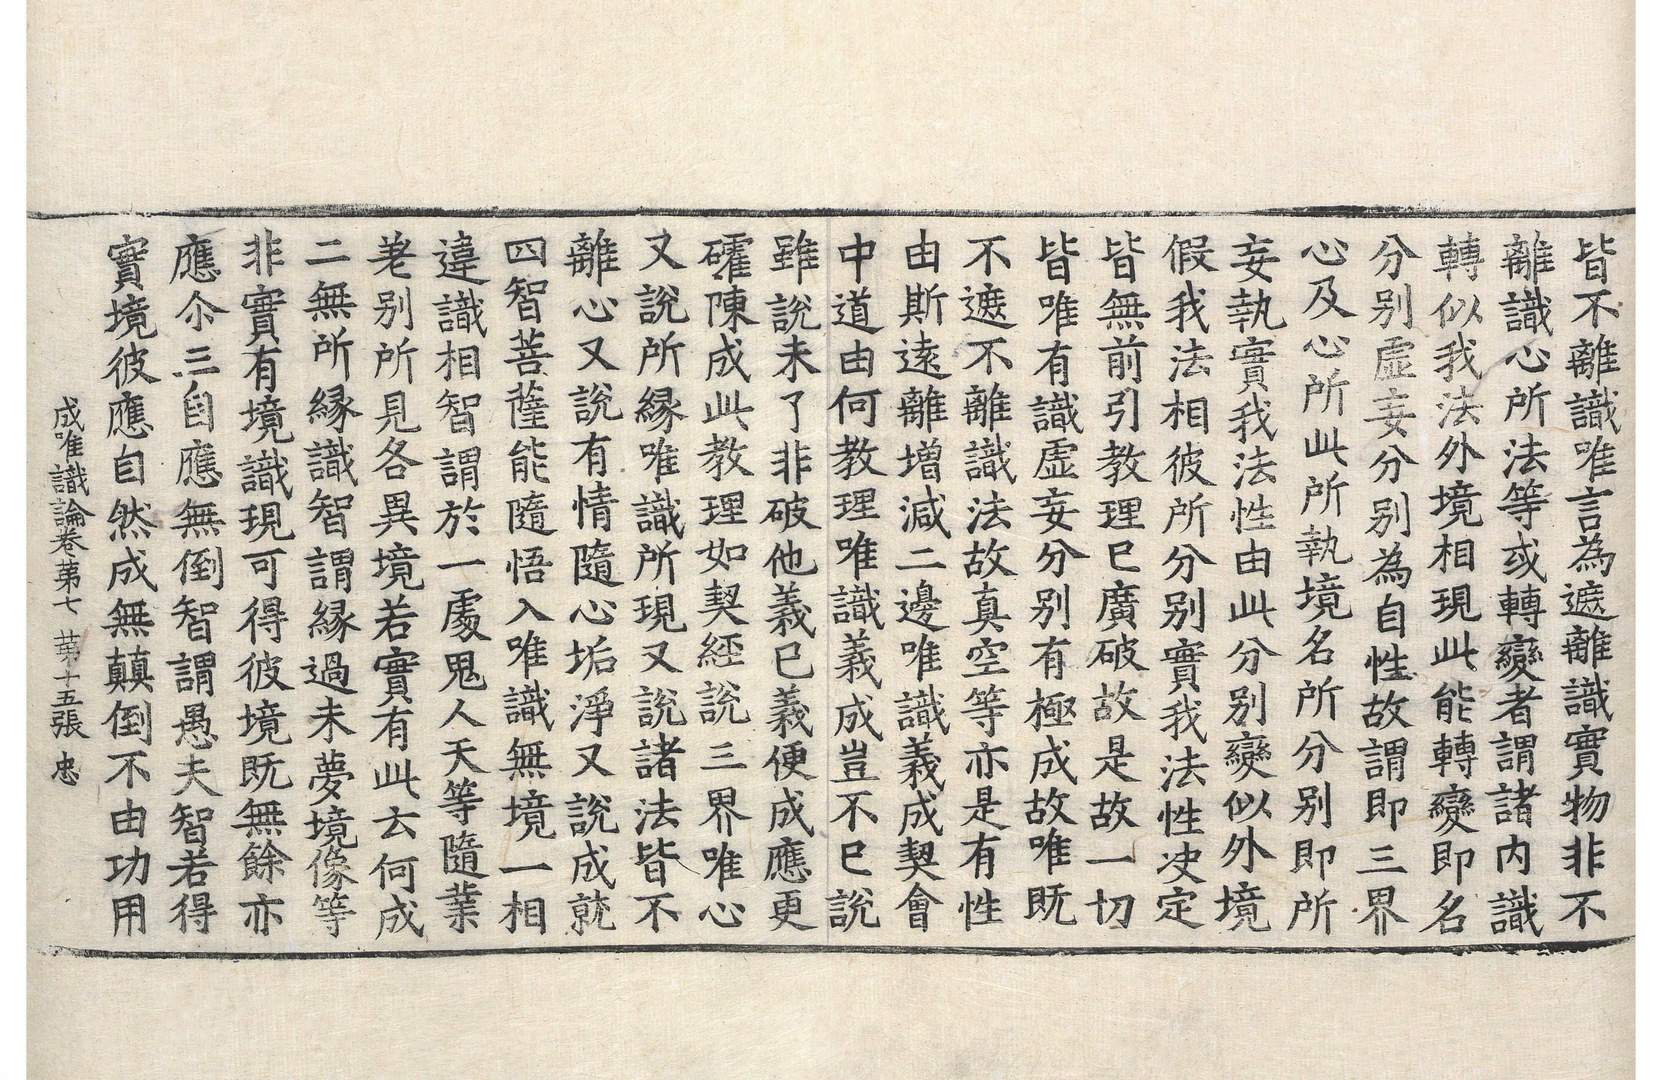 皆不離識唯言為遮離識實物非不
離識心所法等或轉變者謂諸内識
轉似我法外境相現此能轉變即名
分别虛妄分别為自性故謂即三界
心及心所此所執境名所分别即所
妄執實我法性由此分别變似外境
假我法相彼所分别實我法性决定
皆無前引教理已廣破故是故一切
皆唯有識虛妄分别有極成故唯既
不遮不離識法故真空等亦是有性
由斯遠離增減二邊唯識義成契會
中道由何教理唯識義成豈不已說
雖說未了非破他義已義便成應更
礭陳成此教理如契經說三界唯心
又說所緣唯識所現又說諸法皆不
離心又說有情隨心垢淨又說成就
四智菩薩能隨悟入唯識無境一相
違識相智謂於一處鬼人天等隨業
差别所見各異境若實有此云何成
二無所緣識智謂緣過未夢境像等
非實有境識現可得彼境既無餘亦
應尒三自應無倒智謂愚夫智若得
實境彼應自然成無顛倒不由功用
成唯識論卷第七 第十五張 忠